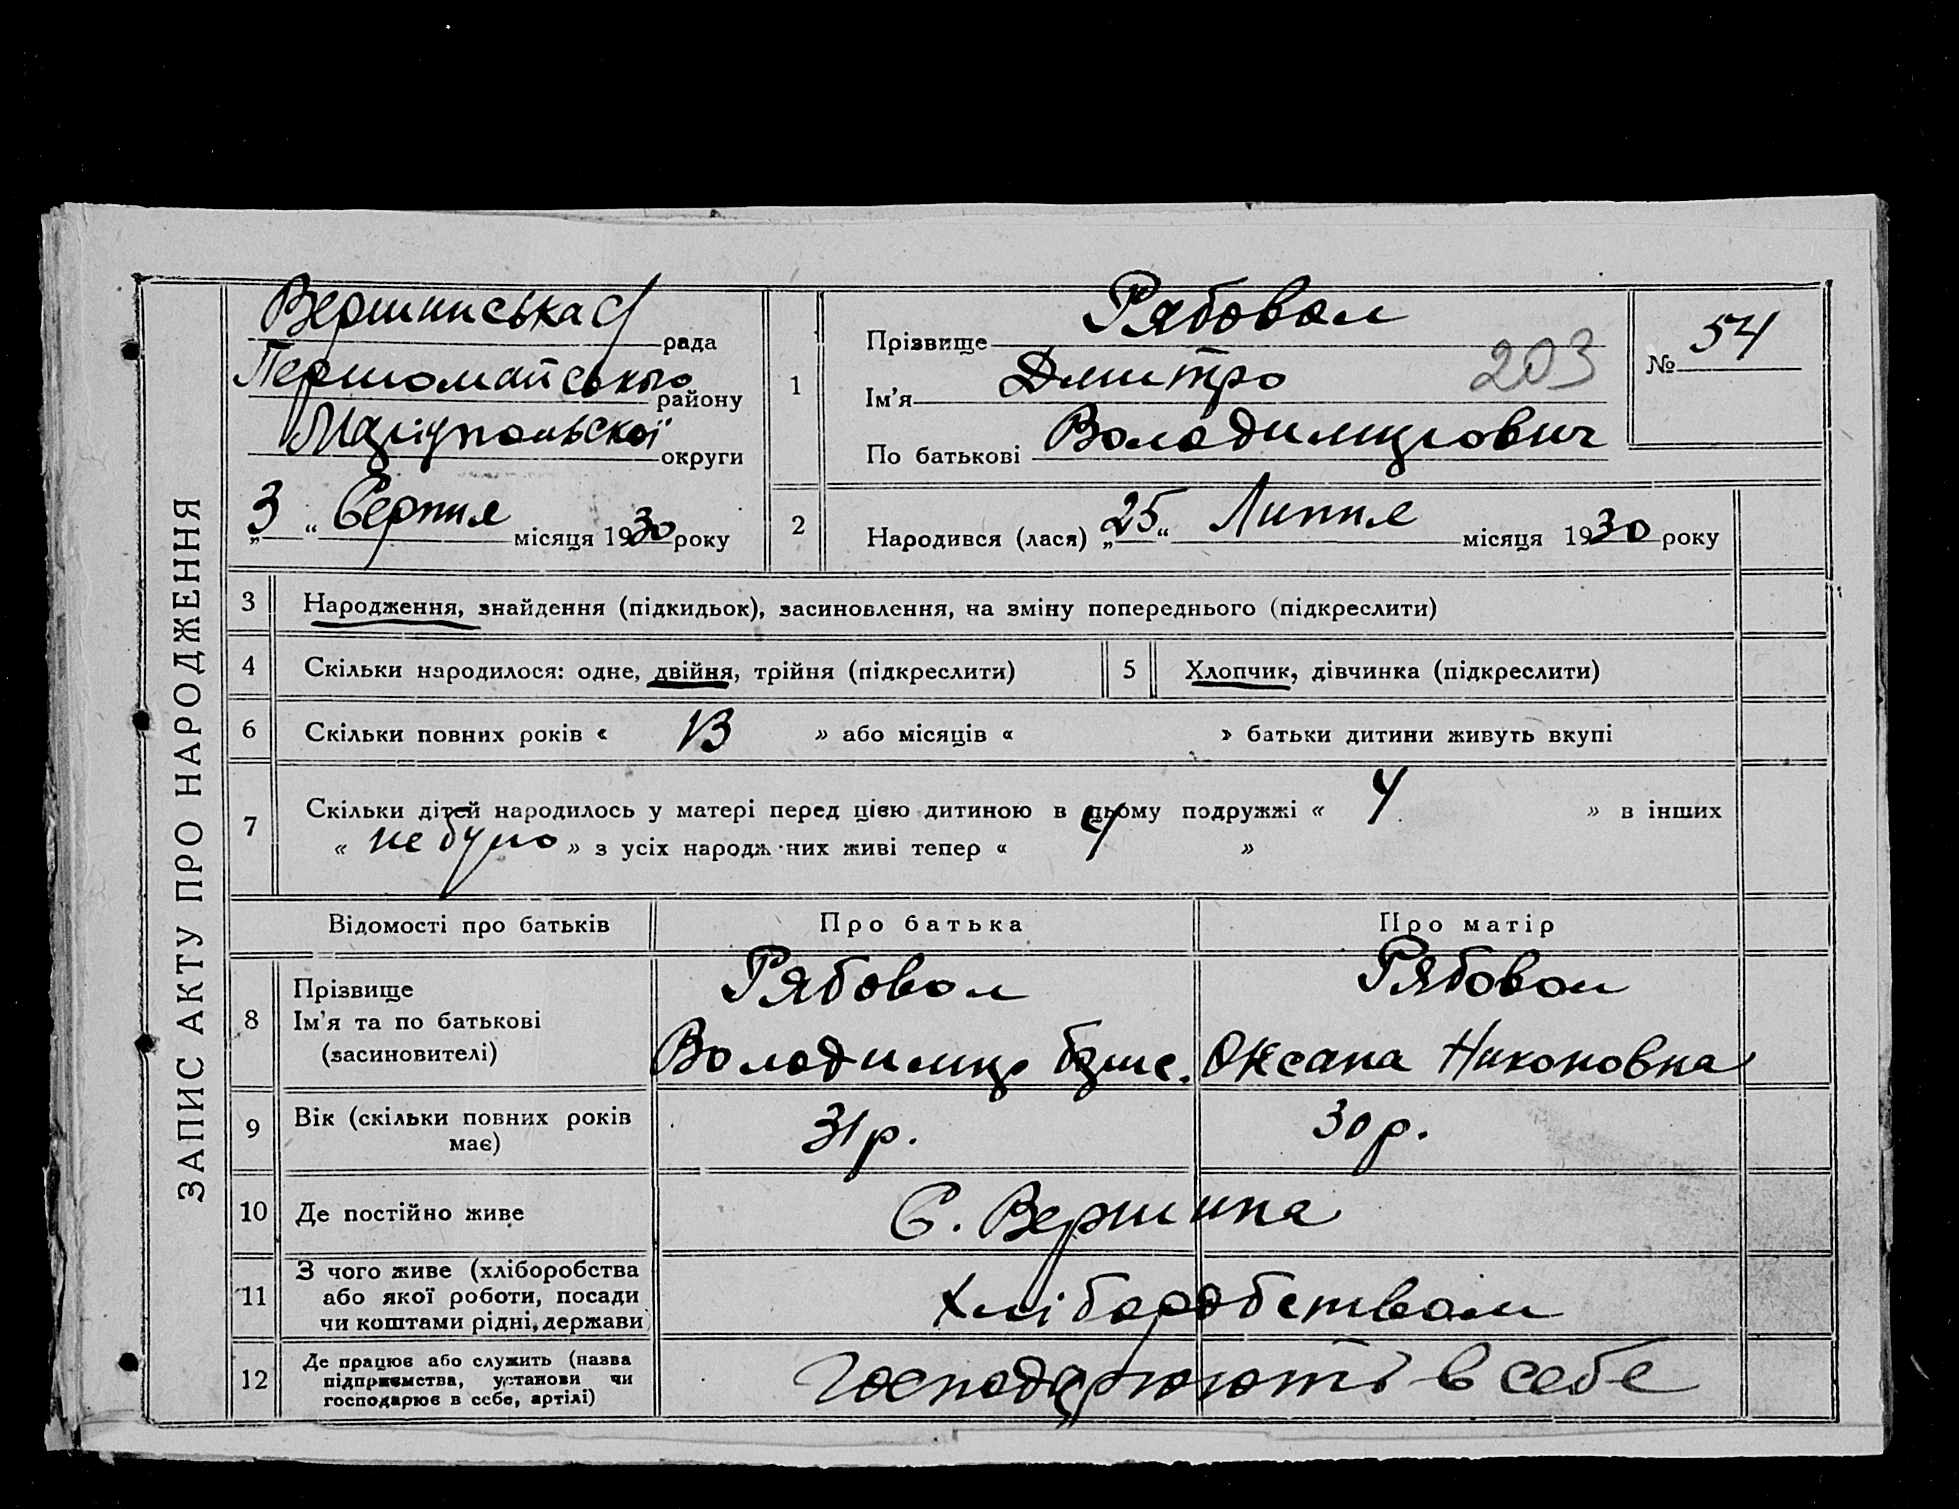 ЗАПИС АКТУ ПРО НАРОДЖЕННЯ
Вершинська с/рада
Першомайського району
Маріупольської округи
„3“ Серпня місяця 1930 року
1
Прізвище Рябовол
Ім'я Дмитро
203
По батькові Володимирович
№ 54
2
Народився (лася) „25“ Липня місяця 1930 року
3 Народження, знайдення (підкидьок), засиновлення, на зміну попереднього (підкреслити)
4 Скільки народилося: одне, двійня, трійня (підкреслити)
5 Хлопчик, дівчинка (підкреслити)
6 Скільки повних років « 13 » або місяців « » батьки дитини живуть вкупі
7 Скільки дітей народилось у матері перед цією дитиною в цьому подружжі « 4 » в інших
« не було » з усіх народж них живі тепер « 4 »
Відомості про батьків Про батька Про матір
8
Прізвище
Ім'я та по батькові
(засиновителі)
Рябовол
Володимир
Рябовол
Оксана Никоновна
9
Вік (скільки повних років
має)
31 р.
30 р.
10 Де постійно живе
С. Вершина
11
З чого живе (хліборобства
або якої роботи, посади
чи коштами рідні, держави)
Хліборобством
12
Де працює або служить (назва
підприємства, установи чи
господарює в себе, артілі)
Господарюють в себе